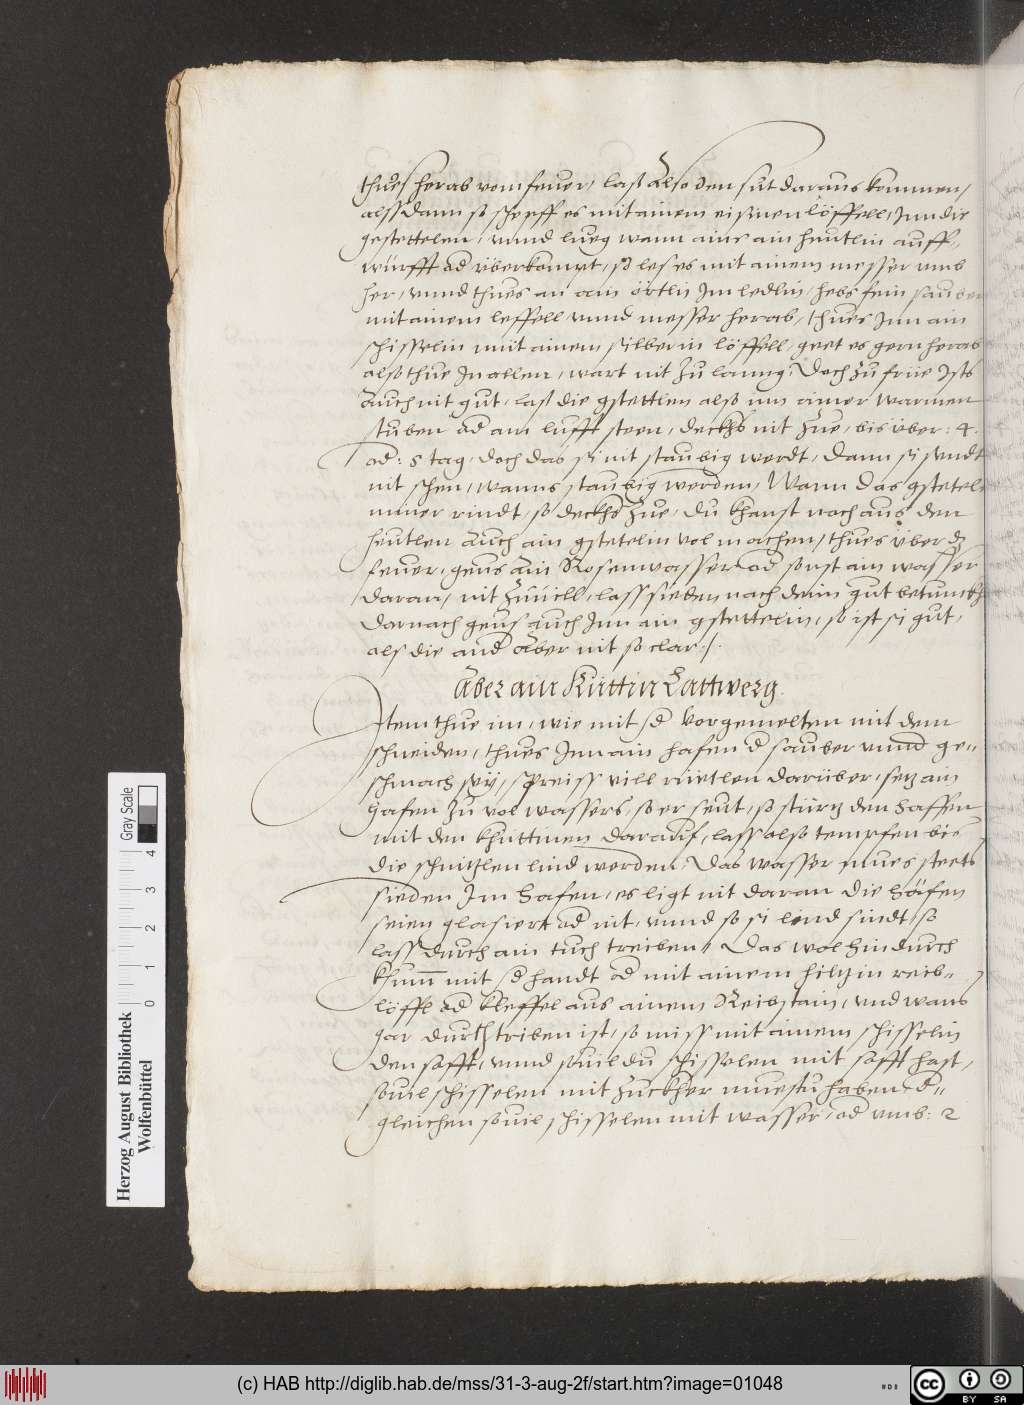 thues herab vom feuer, lass also den sut daraus kommen,
alss dann so schepff es mit ainem eisinen löffell, Inn die
gestettelen, unnd lueg wann ains ain heutlin auff-
würfft od überkompt, so les es mit ainem messer umb
her, unnd thues an ain örtlin Im ledlin, hebs fein sauber
mit ainem leffell unnd messer herab, thues Inn ain
schisselin mit ainem silberin löffell, geet es gern herab
also thue In allen, wart nit zu lanng, Doch zu früe Ists
auch nit gut, lass die gstettlen also inn ainer warmen
stuben od am lufft steen, deckhs nit zue, bis über: 4.
od: 5 tag, doch das si nit staubig werdt, Dann si sindt
nit schen, wanns staubig werden, Wann das gstetel
nimer rindt, so deckhs zue, du khanst noch aus den
heutlen auch ain gstetelin vol machen, thues über dz
feuer, geus ain Rosenwasser od sonst ain wasser
daran, nit zuuill, lass sieden nach dem gut betunckht
darnach geus auch Inn ain gstettelin, so ist si gut,
als die and aber nit so clar ./.
Aber ain Küttin Lattwerg.
Item thue im, wie mit d vorgemelten mit dem
schneiden, thues Inn ain hafen d sauber unnd ge-
schmach seÿ, spreiss vill rüetlen darüber, setz ain
hafen zu vol wassers, so er seut, so stürtz den haffen
mit den khuttinen darauf, lass also tempfen bis
die schnitzlen lind werden, Das wasser mues steets
sieden Im hafen, es ligt nit daran die häfen
seien glasiert od nit, unnd so si lind sindt, so
lass durch ain tuch treiben, Das wol hindurch
khum mit d handt od mit ainem hiltzin reib-
löffl od kleffel aus ainem Reibstain, und wans
gar durch triben ist, so miss mit ainem schisselin
den safft, unnd souil du schisselen mit safft hast,
souil schisselen mit zuckher muestu haben d-
gleichen souil schisselen mit wasser, od umb: 2
Herzog August Bibliothek
Wolfenbüttel
0 1 2 3 4
Gray Scale
(c) HAB http://diglib.hab.de/mss/31-3-aug-2f/start.htm?image=01048
cc BY SA